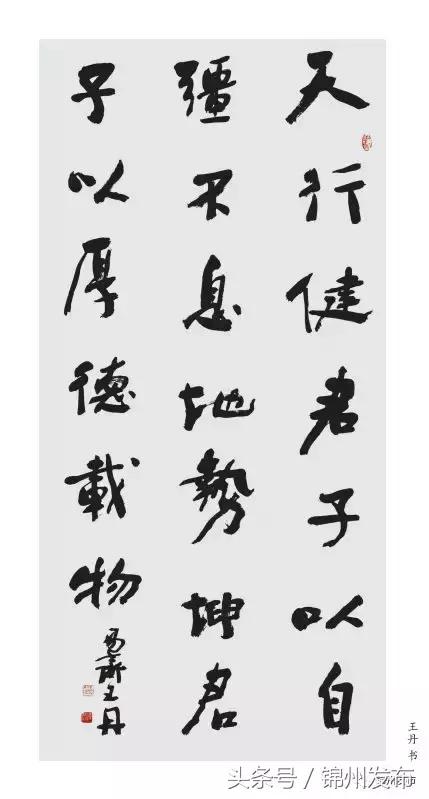 天行健君子以自
彊不息地勢坤君
子以厚德載物
王丹
王丹 书
头条号 / 锦州发布